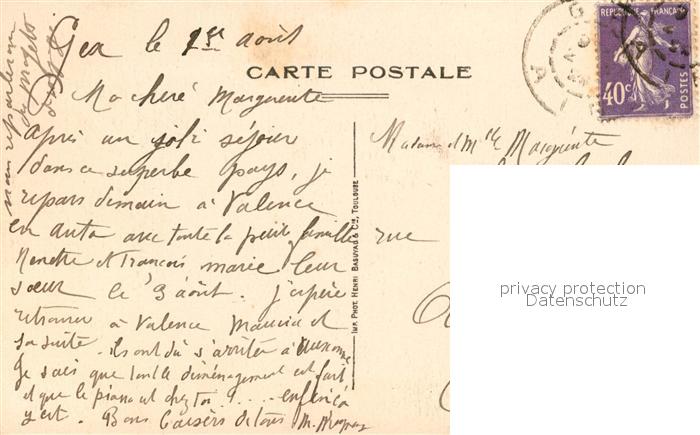 Gea le 1er Août
CARTE POSTALE
REPUBLIQUE FRANÇAISE
40c
POSTES
nous reparlerons
de projets
Ma cheré Marguerite
après un joli séjour
dans ce superbe pays, je
repars demain à Valence
en auto avec toute la petite famille
Nenette et François marie leur
sœur le 3 août. J'espère
retrouver à Valence Maurice et
sa suite. ils ont dû s'arrêter à
Je sais que tout le déménagement est fait
et que le piano est chez toi !.... enfin ça
y est. Bons baisers de tous M.
Madame et Mlle Marguerite
rue
IMP. PHOT. HENRI BASUYAU & Cie, TOULOUSE
privacy protection
Datenschutz